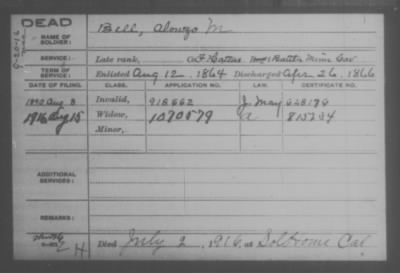 DEAD
NAME OF SOLDIER: Bell, Alonzo M
SERVICE: Late rank, Co. F Hattis Battn Minn Cav
TERM OF SERVICE: Enlisted Aug 12, 1864 Discharged Apr 26, 1866
DATE OF FILING. CLASS. APPLICATION NO. LAW. CERTIFICATE NO.
1890 Aug 8 Invalid, 918662 J. May 628178
1916 Aug 15 Widow, 1070579 815234
Minor,
ADDITIONAL SERVICES:
REMARKS:
Died July 2, 1916, at Cal